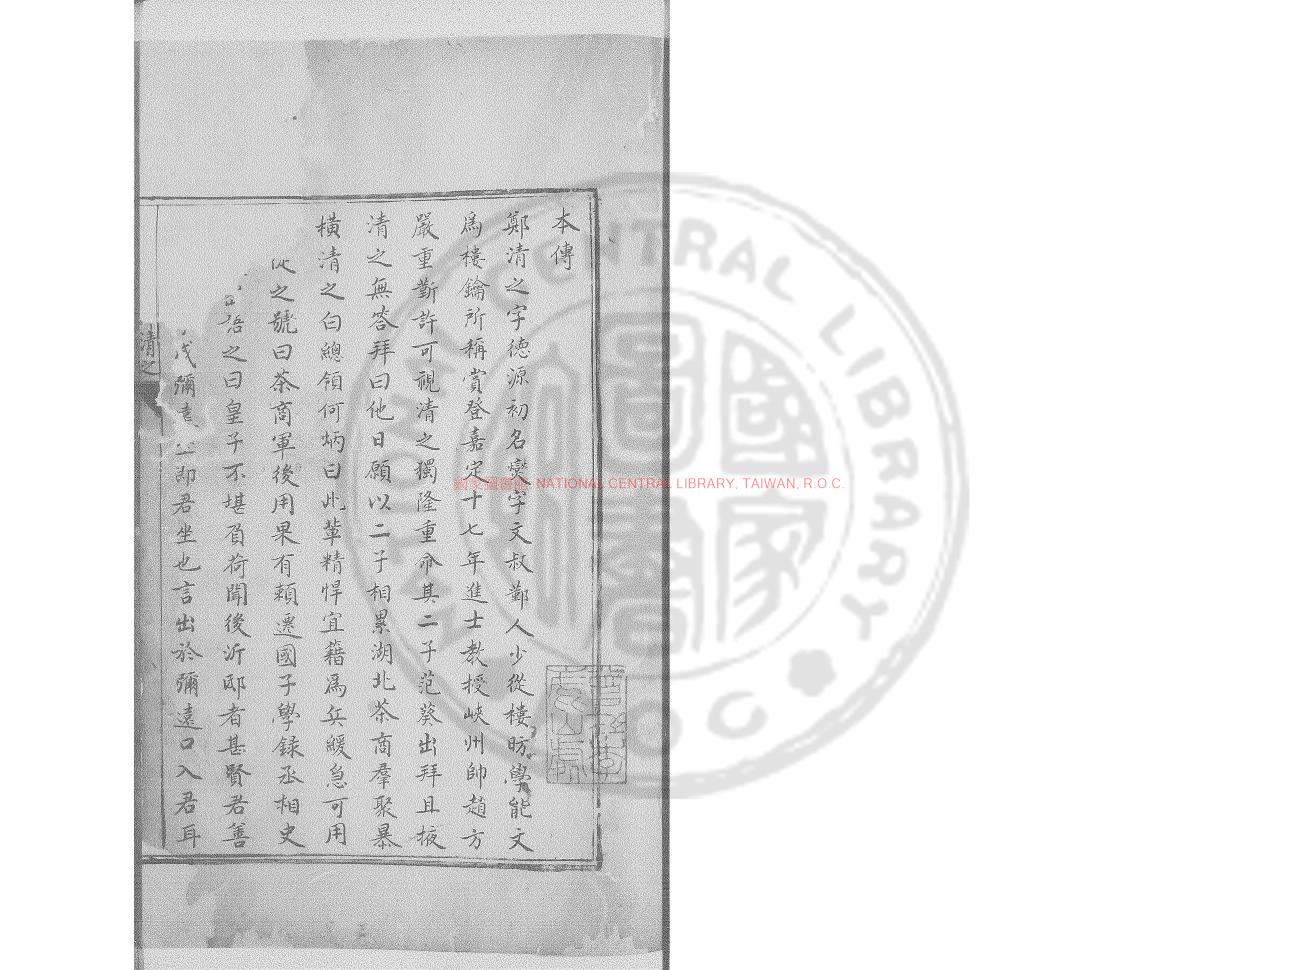 本傳
鄭清之字德源初名燮字文叔鄞人少從樓昉學能文
爲樓鑰所稱賞登嘉定十七年進士教授峽州帥趙方
嚴重靳許可視清之獨隆重命其二子范葵出拜且掖
清之無答拜曰他日願以二子相累湖北茶商羣聚暴
橫清之白總領何炳曰此輩精悍宜籍爲兵緩急可用
從之號曰茶商軍後用果有賴遷國子學録丞相史
語之曰皇子不堪負荷聞後沂邸者甚賢君善
彌遠之即君坐也言出於彌遠口入君耳
清之
NATIONAL CENTRAL LIBRARY
ROC
國家圖書館 NATIONAL CENTRAL LIBRARY, TAIWAN, R.O.C.